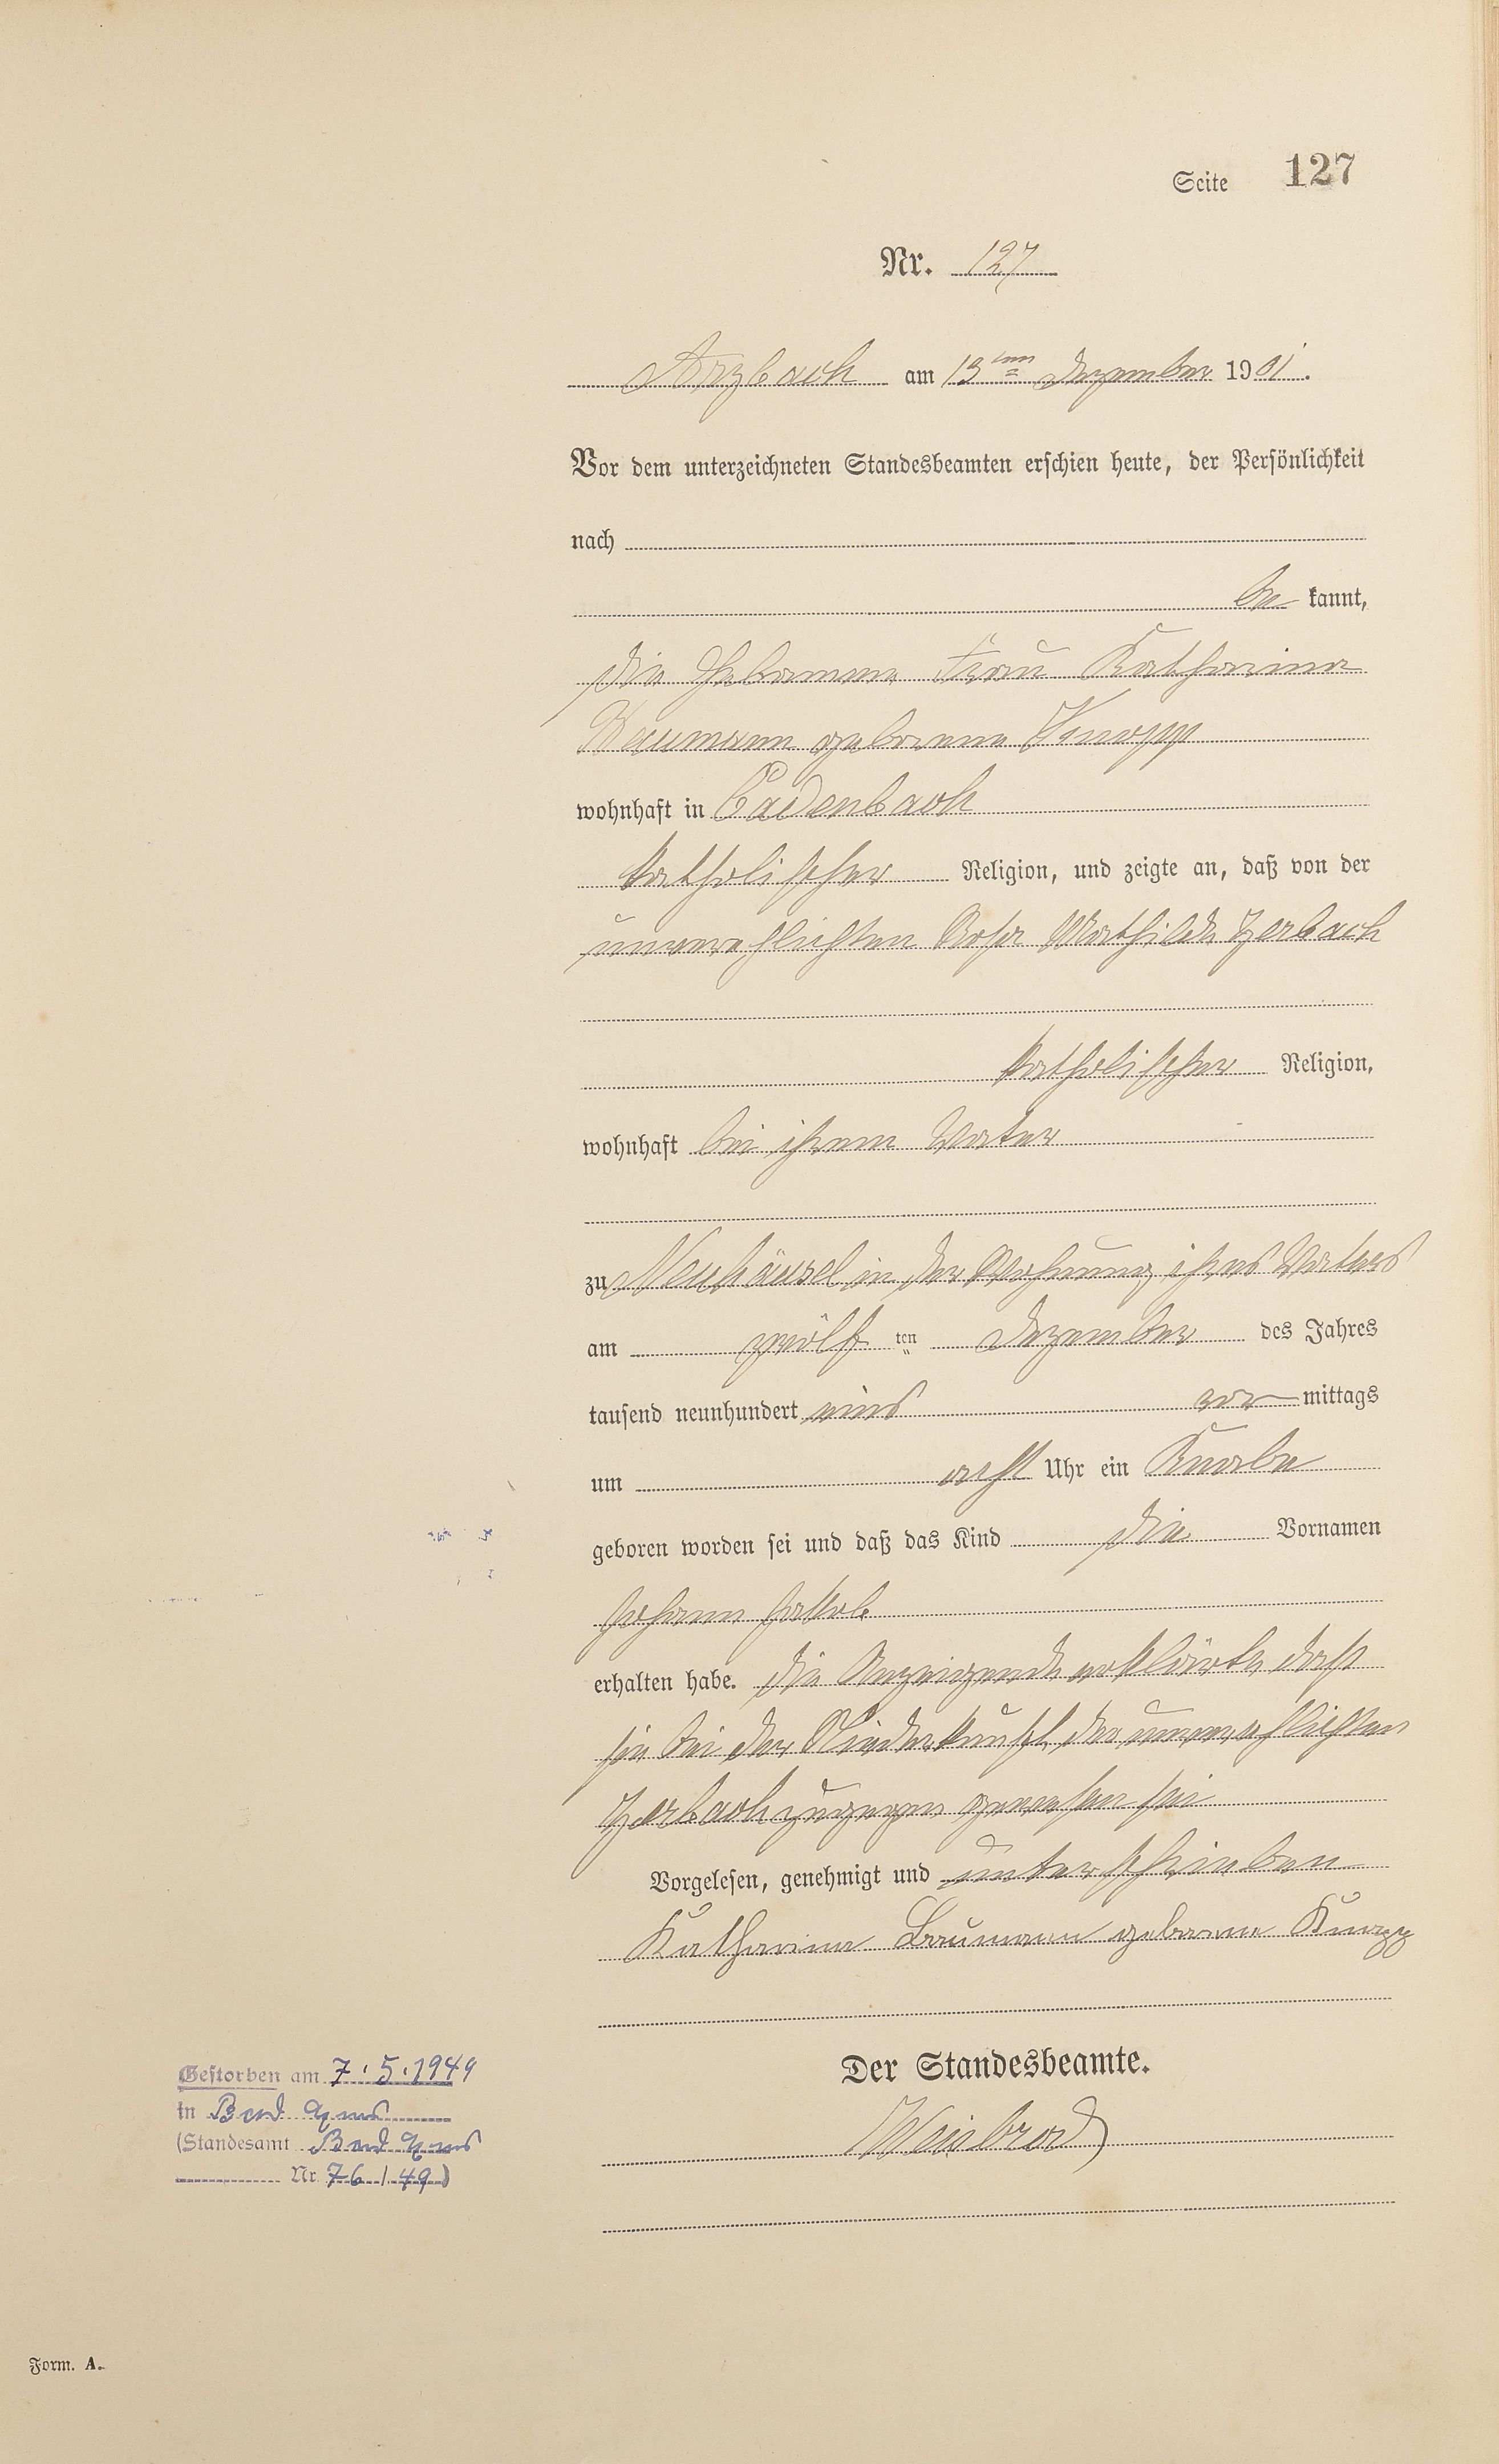 Seite 127
Nr. 127
Arzbach am 13ten Dezember 1901.
Vor dem unterzeichneten Standesbeamten erschien heute, der Persönlichkeit
nach
be kannt,
die Hebamme Frau Katharina
Baumann geborene Knopp
wohnhaft in Cadenbach
katholischer Religion, und zeigte an, daß von der
unverehelichten Rosa Mathilde Zerbach
katholischer Religion,
wohnhaft bei ihrem Vater
zu Neuhäusel in der Wohnung ihres Vaters
am zwölf ten Dezember des Jahres
tausend neunhundert eins vor mittags
um acht Uhr ein Knabe
geboren worden sei und daß das Kind die Vornamen
Johann Jakob
erhalten habe. Die Anzeigende erklärte, daß
sie bei der Niederkunft der unverehelichten
Zerbach zugegen gewesen sei
Vorgelesen, genehmigt und unterschrieben
Katharina Baumann geborne Knopp
Der Standesbeamte.
Weisbrod
Gestorben am 7.5.1949
in Bad Ems
(Standesamt Bad Ems
Nr. 76/49)
Form. A.